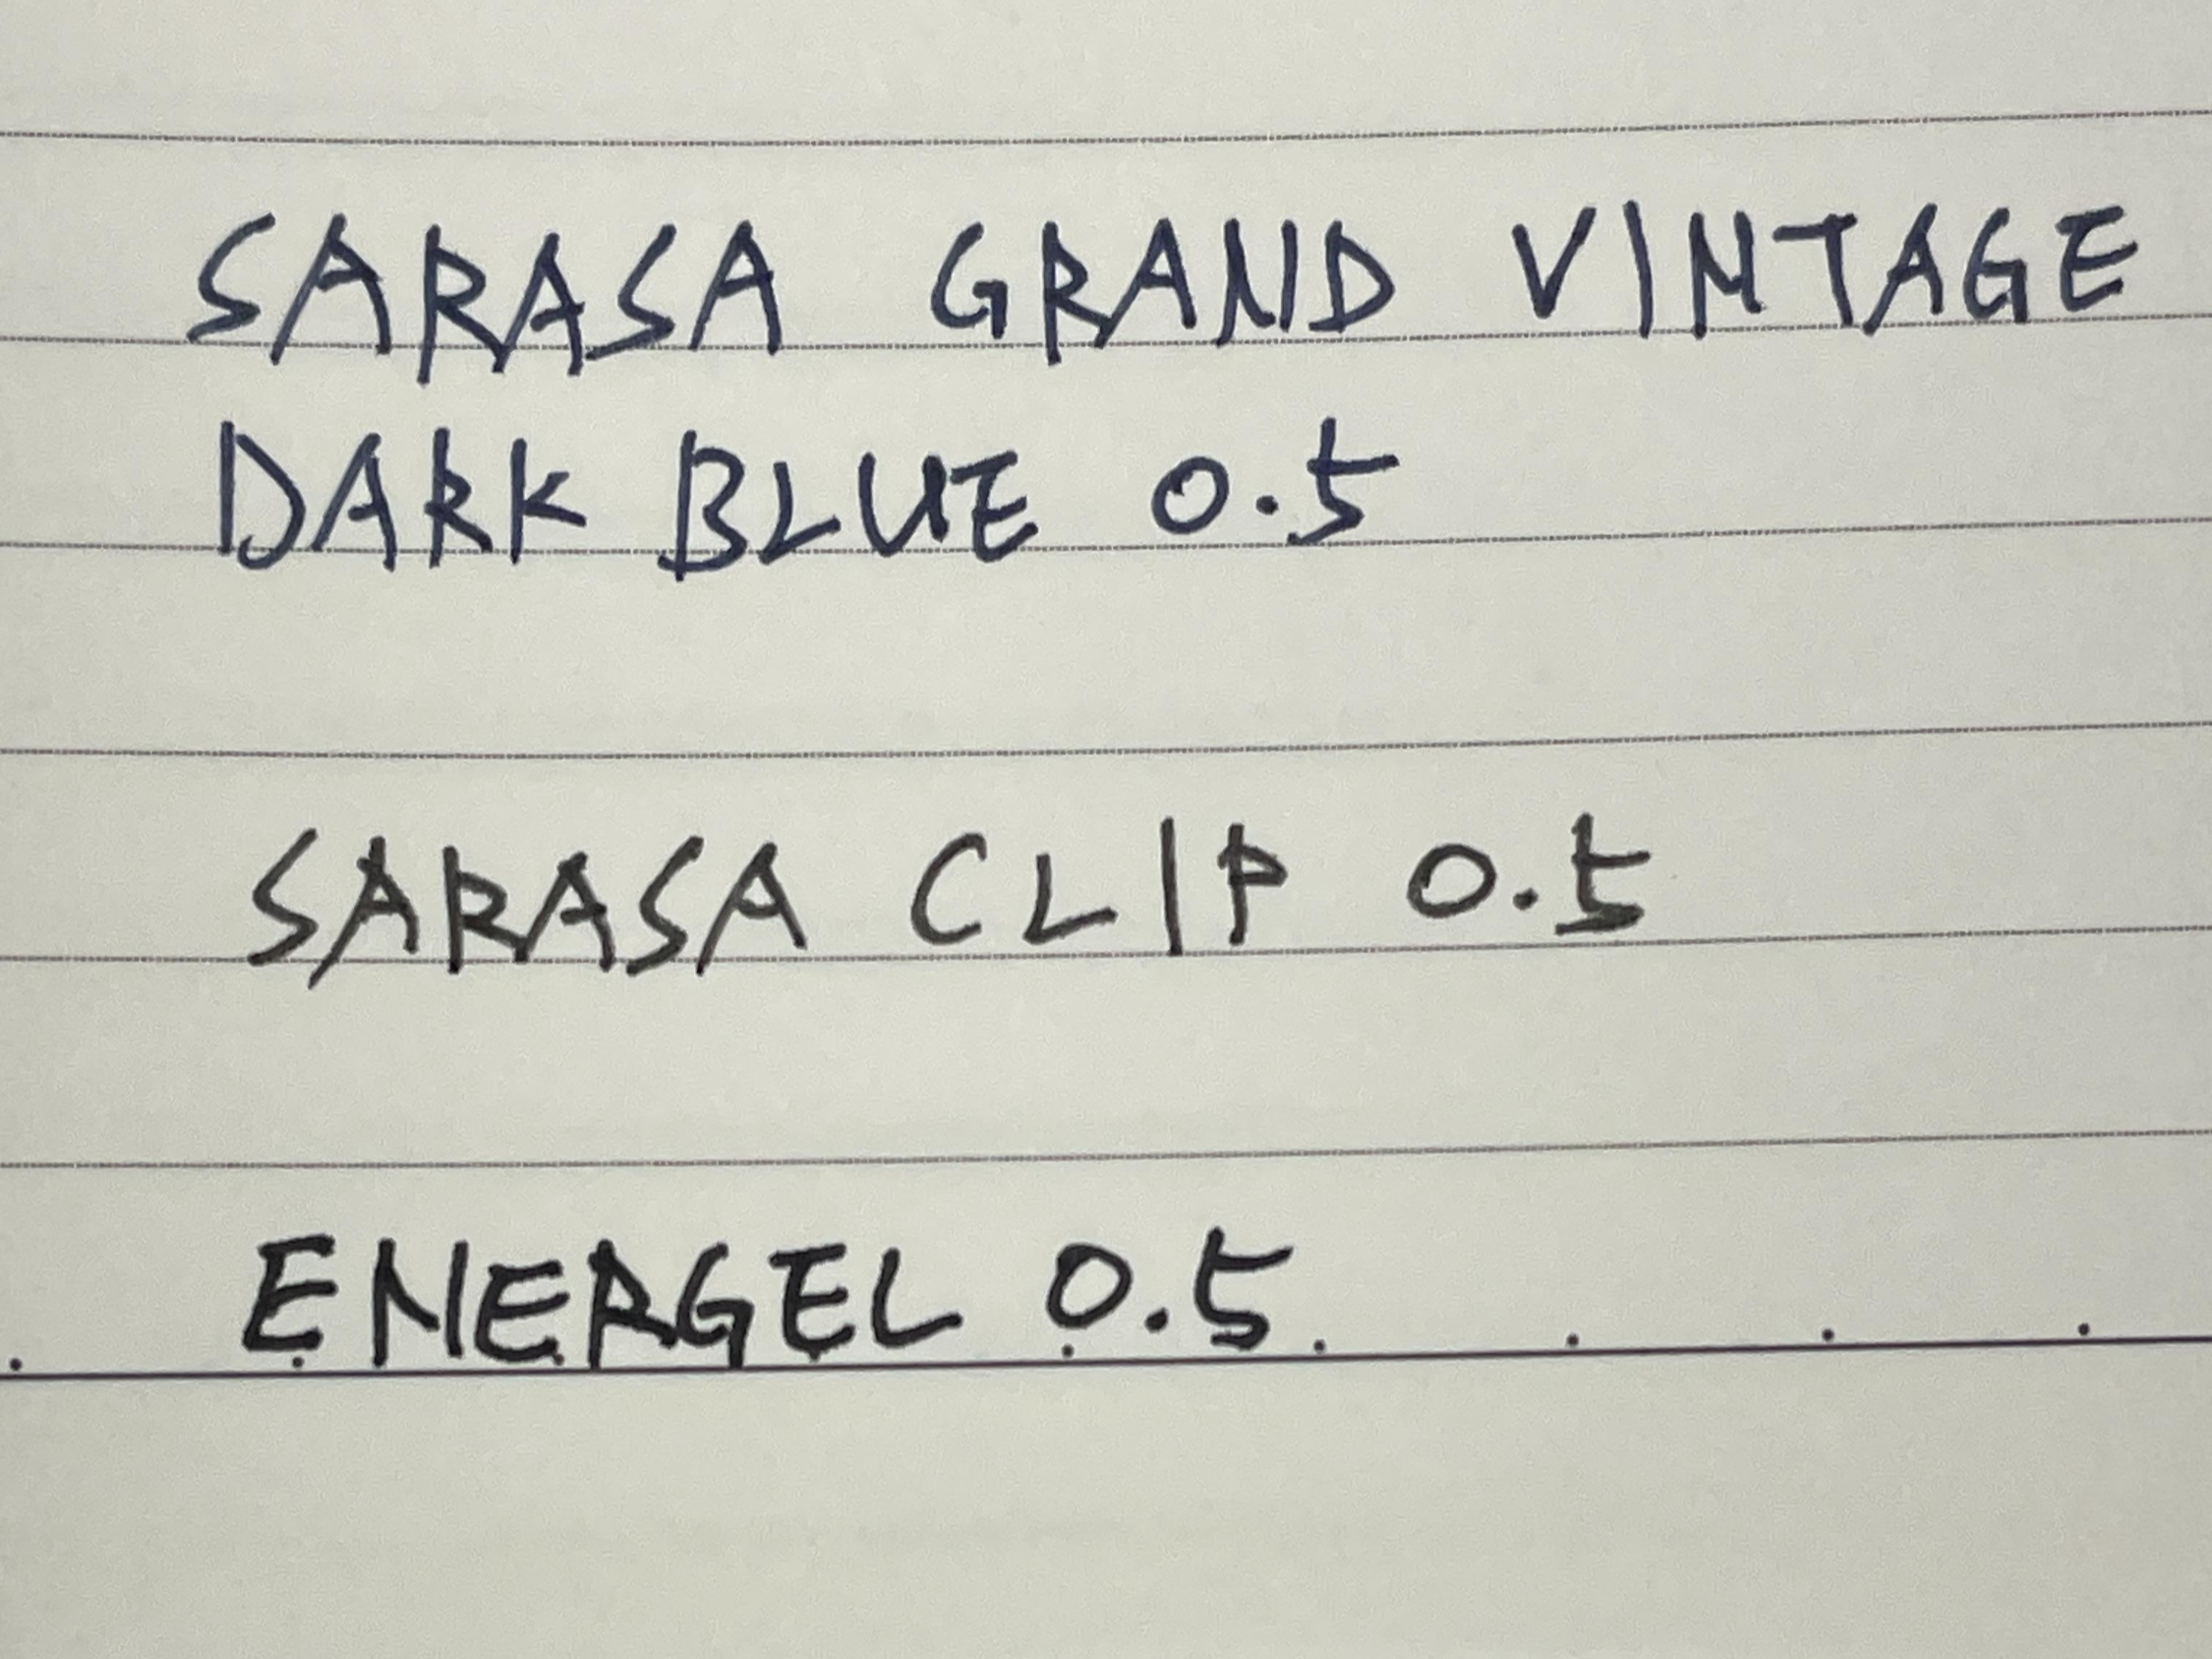 SARASA GRAND VINTAGE
DARK BLUE 0.5
SARASA CLIP 0.5
ENERGEL 0.5